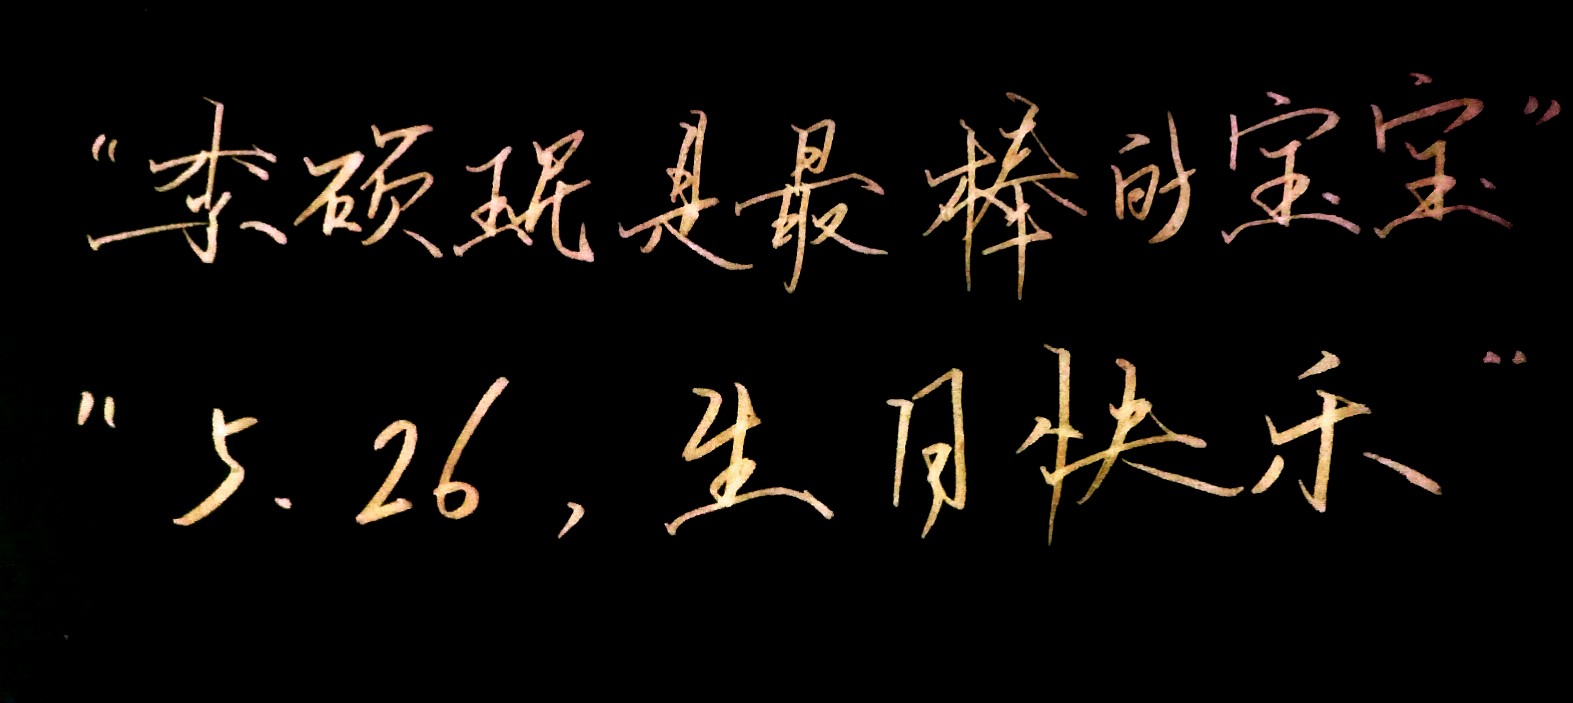 “李硕珉是最棒的宝宝”
“5.26，生日快乐”